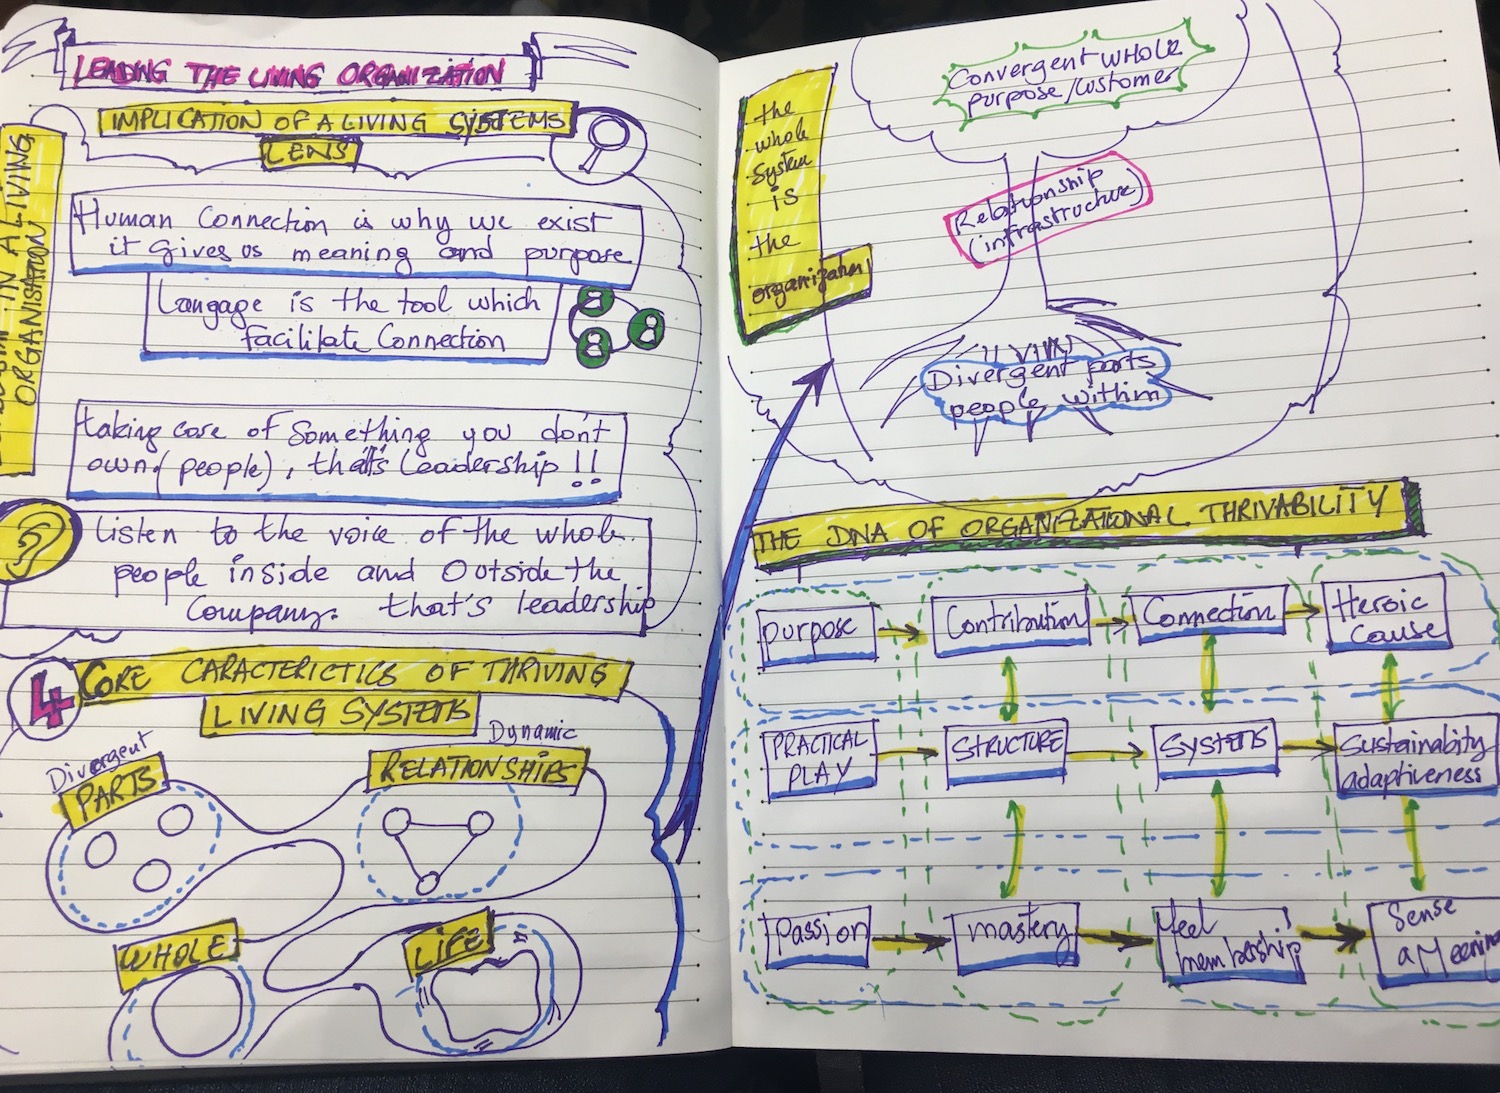 LEADING THE LIVING ORGANIZATION
IMPLICATION OF A LIVING SYSTEMS
LENS
IN A LIVING
ORGANISATION
Human Connection is why we exist
it gives us meaning and purpose
Langage is the tool which
facilitate Connection
taking care of something you don't
own (people), that's leadership !!
Listen to the voice of the whole
people inside and outside the
Company. that's leadership
4 CORE CARACTERICTICS OF THRIVING
LIVING SYSTEMS
Divergent
PARTS
Dynamic
RELATIONSHIPS
WHOLE
LIFE
the
whole
system
is
the
organization
Convergent whole
purpose/customer
Relationship
(infrastructure)
Divergent parts
people within
THE DNA OF ORGANIZATIONAL THRIVABILITY
purpose
Contribution
Connection
Heroic
Cause
PRACTICAL
PLAY
STRUCTURE
SYSTEMS
Sustainability
adaptiveness
Passion
mastery
feel
membership
Sense
a Meening